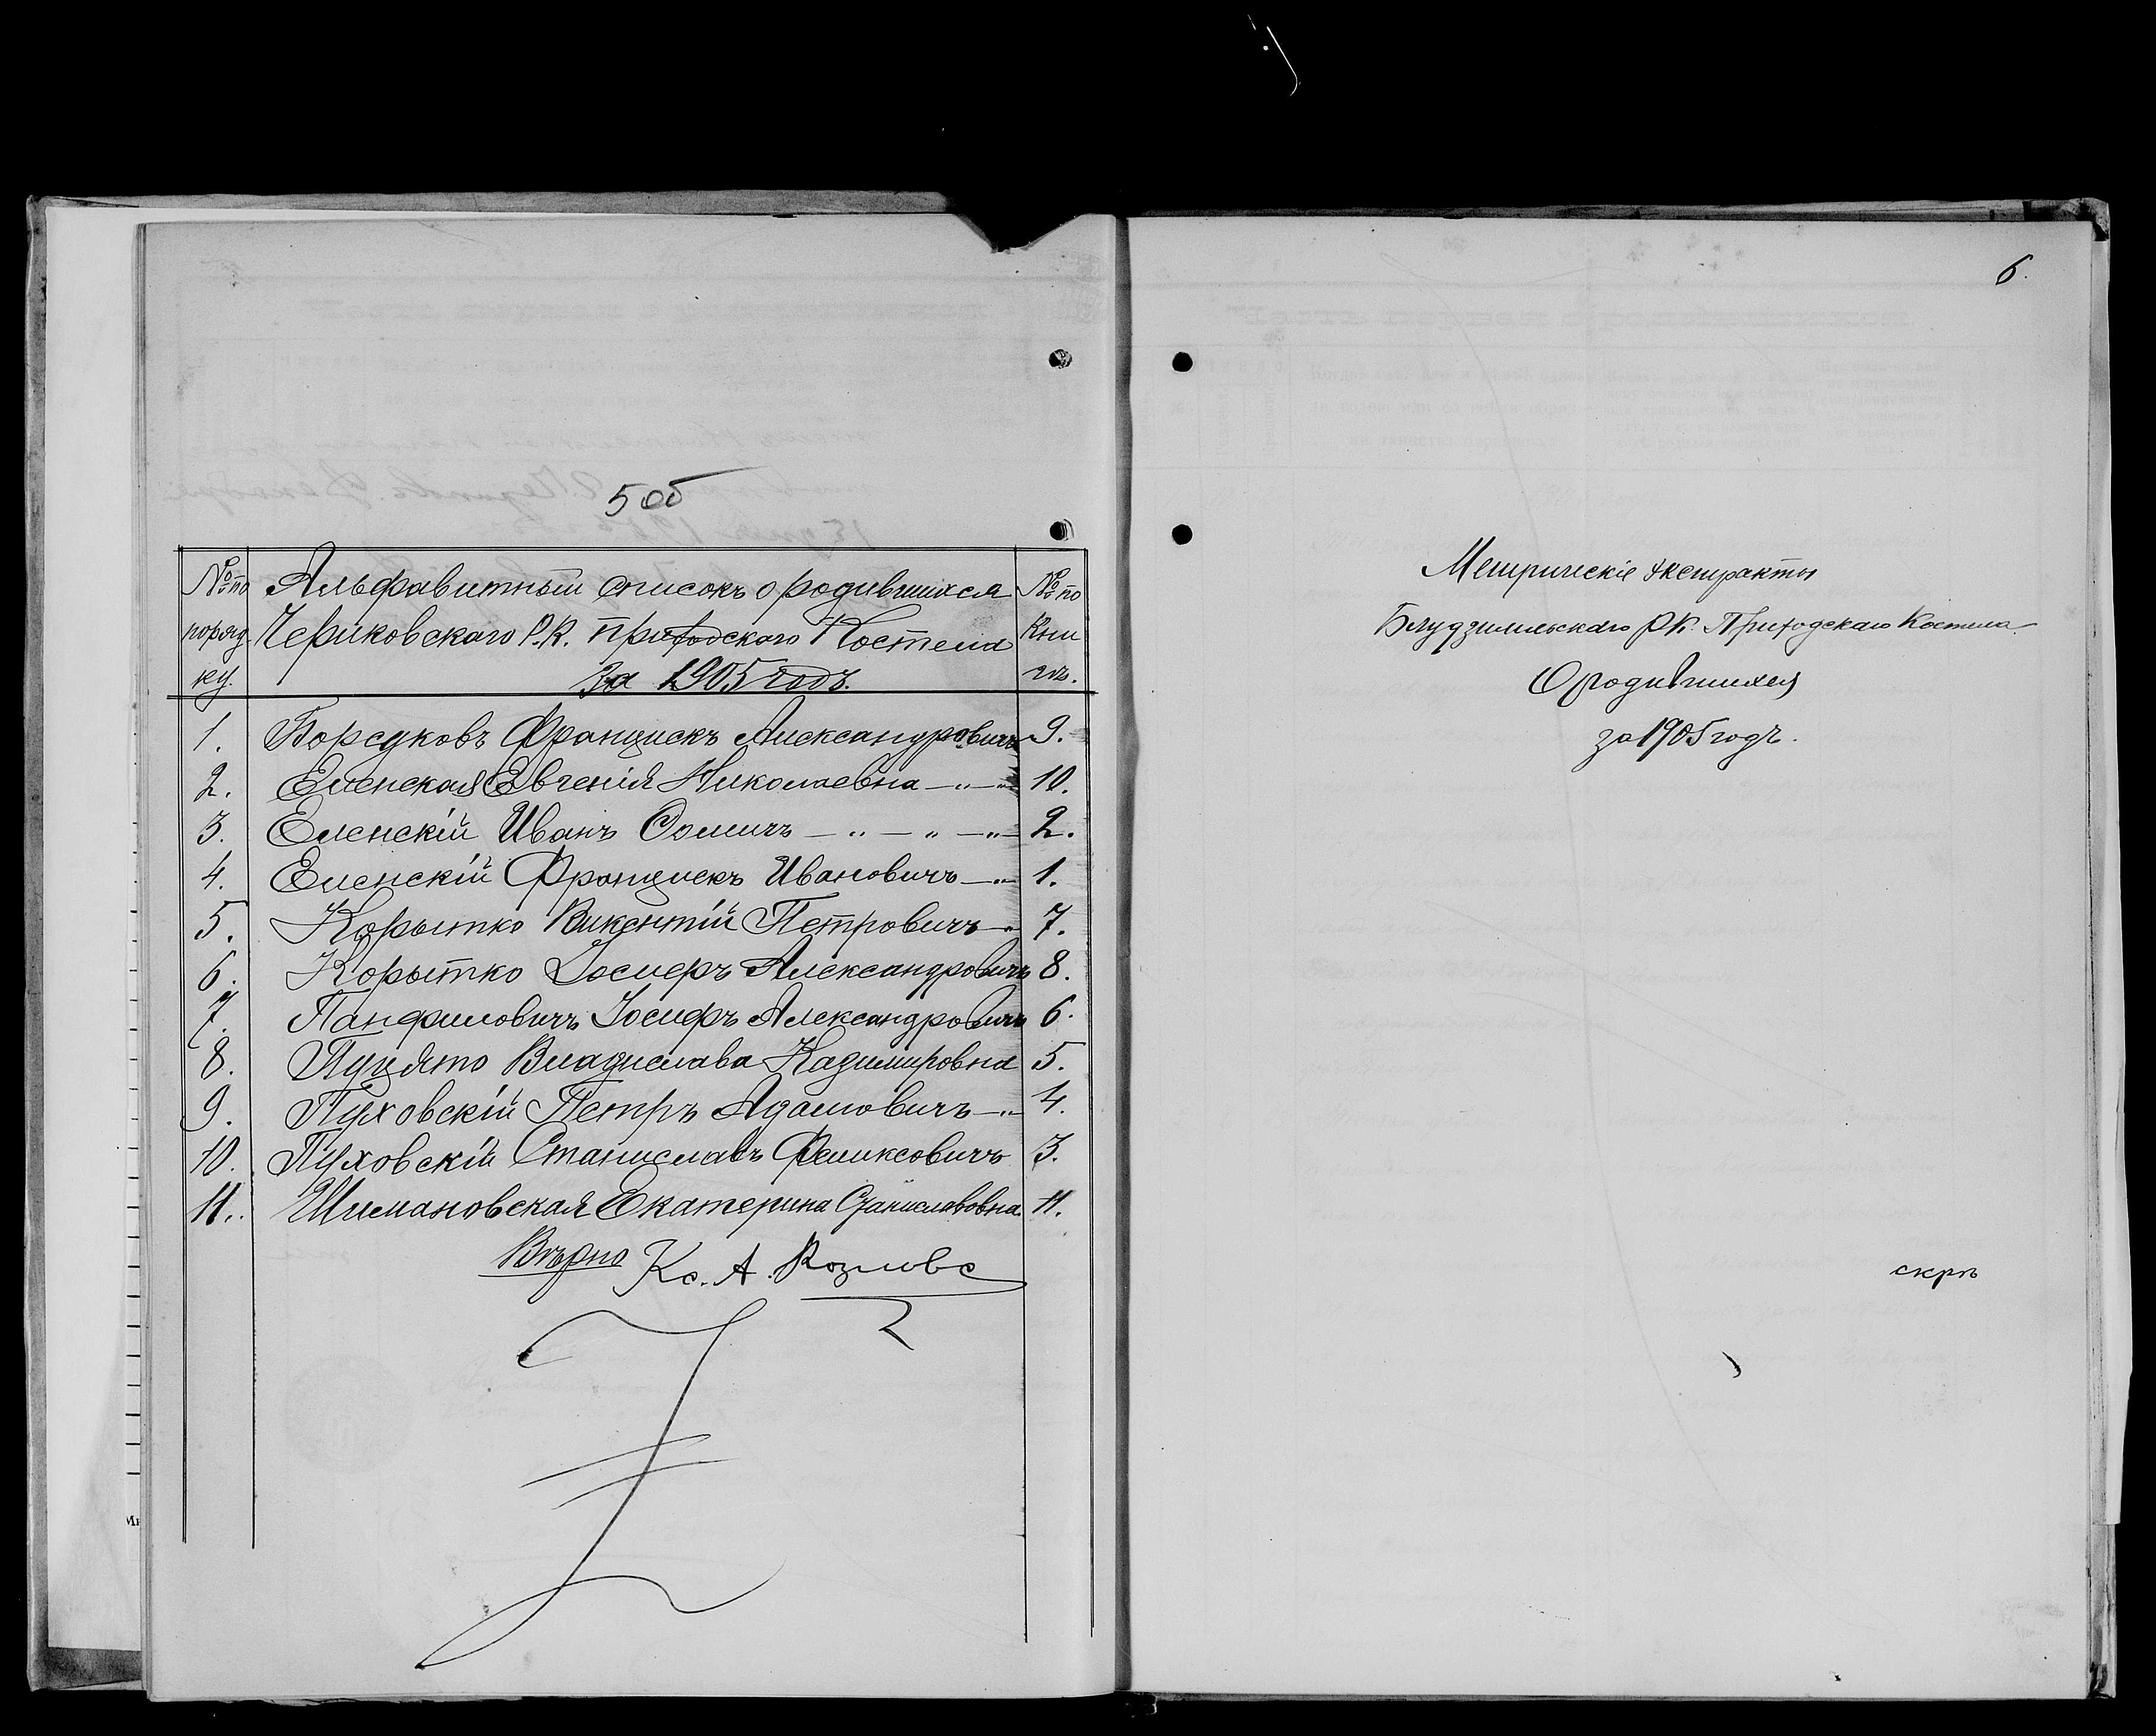 5 об
№ по Альфавитный списокъ о родившихся № по
поряд Чериковскаго Р.К. приходскаго Костела Кни
ку. За 1905 годъ. гѣ.
1. Борсуковъ Францискъ Александровичъ 9.
2. Еленская Евгенія Николаевна —„—„ 10.
3. Еленскій Иванъ Ѳомичъ — „ — „ —„— 2.
4. Еленскій Францискъ Ивановичъ —„— 1.
5. Корытко Викентій Петровичъ —„ 7.
6. Корытко Іосифъ Александровичъ 8.
7. Панфиловичъ Іосифъ Александровичъ 6.
8. Пуцято Владислава Казимировна 5.
9. Пуховскій Петръ Адамовичъ —„— 4.
10. Пуховскій Станиславъ Феликсовичъ 3.
11. Шимановская Екатерина Станиславовна 11.
Вѣрно Кс. А.
6.
Метрическіе экстракты
Р.К. Приходскаго Костела
О родившихся
за 1905 годъ.
скрѣ